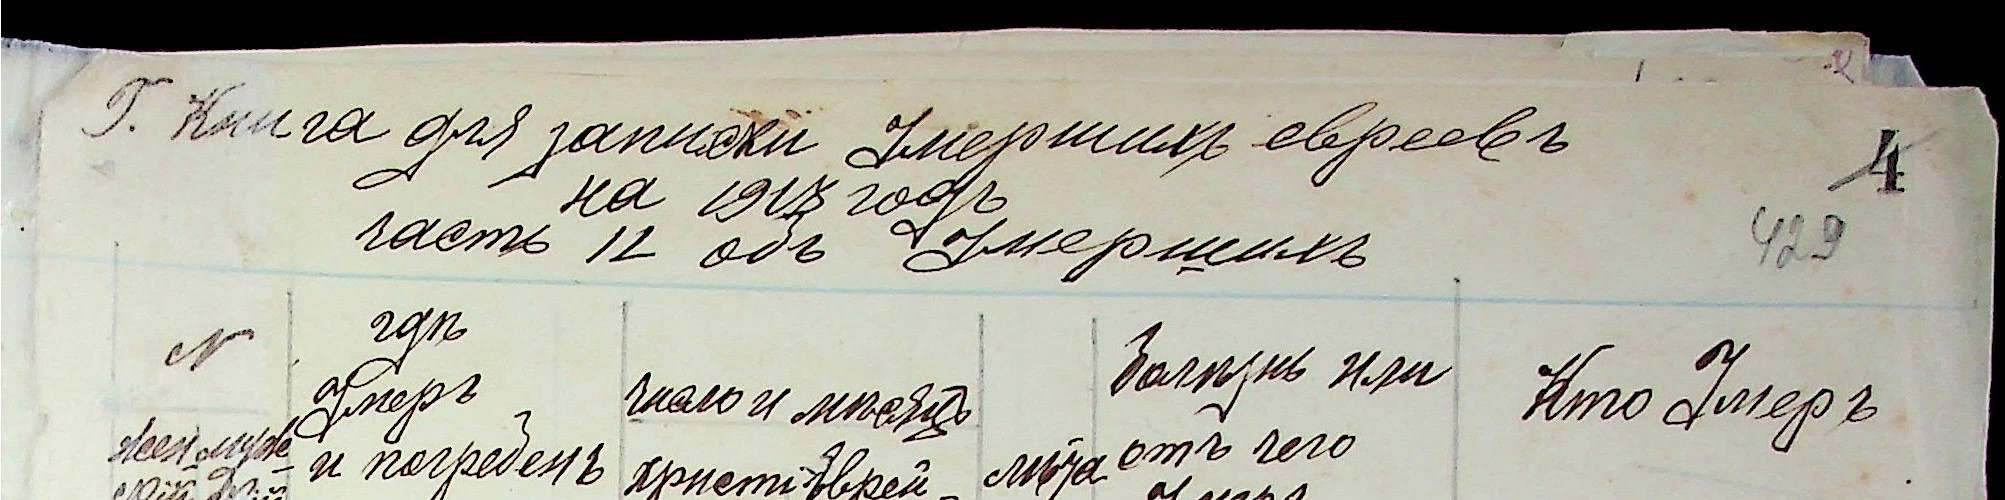 Г. Книга для записки Умершихъ евреевъ
на 1917 годъ
часть 12 объ Умершихъ
4
429
N
жен муж
ской ской
гдѣ
Умеръ
и погребенъ
число и мѣсяцъ
христі Еврей
лѣта
Болѣзнь или
отъ чего
Умеръ
Кто Умеръ